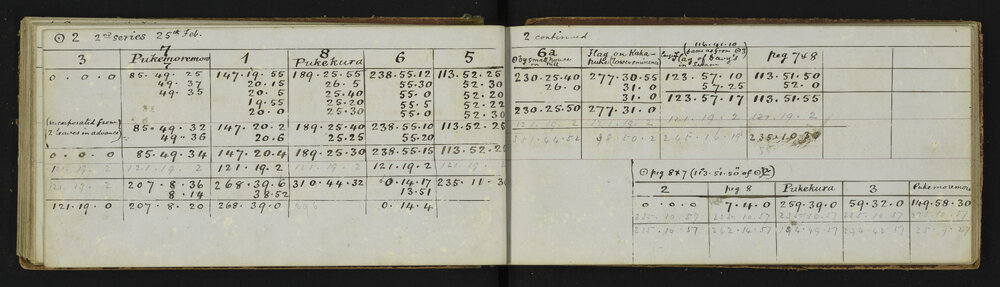 ⊙ 2 2nd series 25th Feb.
3 7 Pukemoremore 1 8 Pukekura 6 5
0. 0. 0 85. 49. 25 147. 19. 55 189. 25. 55 238. 55. 12 113. 52. 25
49. 37 20. 15 26. 5 55. 30 52. 30
49. 35 20. 5 25. 40 55. 0 52. 20
19. 55 25. 20 55. 5 52. 22
20. 0 25. 30 55. 0 52. 30
(incorporated from 2 leaves in advance) 85. 49. 32 147. 20. 2 189. 25. 40 238. 55. 10 113. 52. 28
49. 36 20. 6 25. 25 55. 20
0. 0. 0 85. 49. 34 147. 20. 4 189. 25. 30 238. 55. 15 113. 52.
121. 19. 2 121. 19. 2 121. 19. 2 121. 19. 2 121. 19
121. 19. 2 207. 8. 36 268. 39. 6 310. 44. 32 0. 14. 17 235. 11. 3
8. 14 38. 52 13. 51
121. 19. 0 207. 8. 20 268. 39. 0 0. 14. 4
2 continued
6a
⊙ by small house on hill Flag on Kaka-puka (lower eminence) Flag of Cavy's peg 7&8
230. 25. 40 277. 30. 55 123. 57. 10 113. 51. 50
26. 0 31. 0 57. 25 52. 0
31. 0
230. 25. 50 277. 31. 0 123. 57. 17 113. 51. 55
121. 19. 2 121. 19. 2 121. 19. 2 121. 19. 2
235. 10. 30
⊙ peg 8&7 (113. 51. 50 of ⊙2)
2 peg 8 Pukekura 3 Pukemoremore
0. 0. 0 7. 4. 0 259. 39. 0 59. 32. 0 149. 58. 30
235. 10. 57 235. 10. 57 235. 10. 57 235. 10. 57 235. 10. 57
235. 10. 57 242. 14. 57